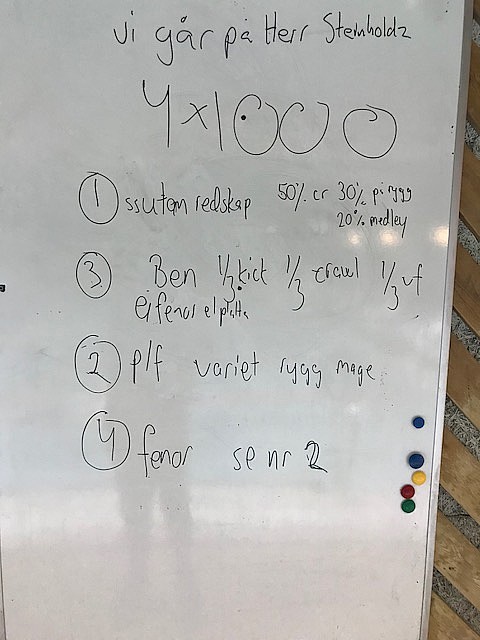 vi går på Herr Steinholdz
4x1000
1 ssutan redskap 50% cr 30% på rygg
20% medley
3. Ben 1/3 kick 1/3 crawl 1/3 vf
Ej fenor el platta
2 p/f variet rygg mage
4 fenor se nr 2